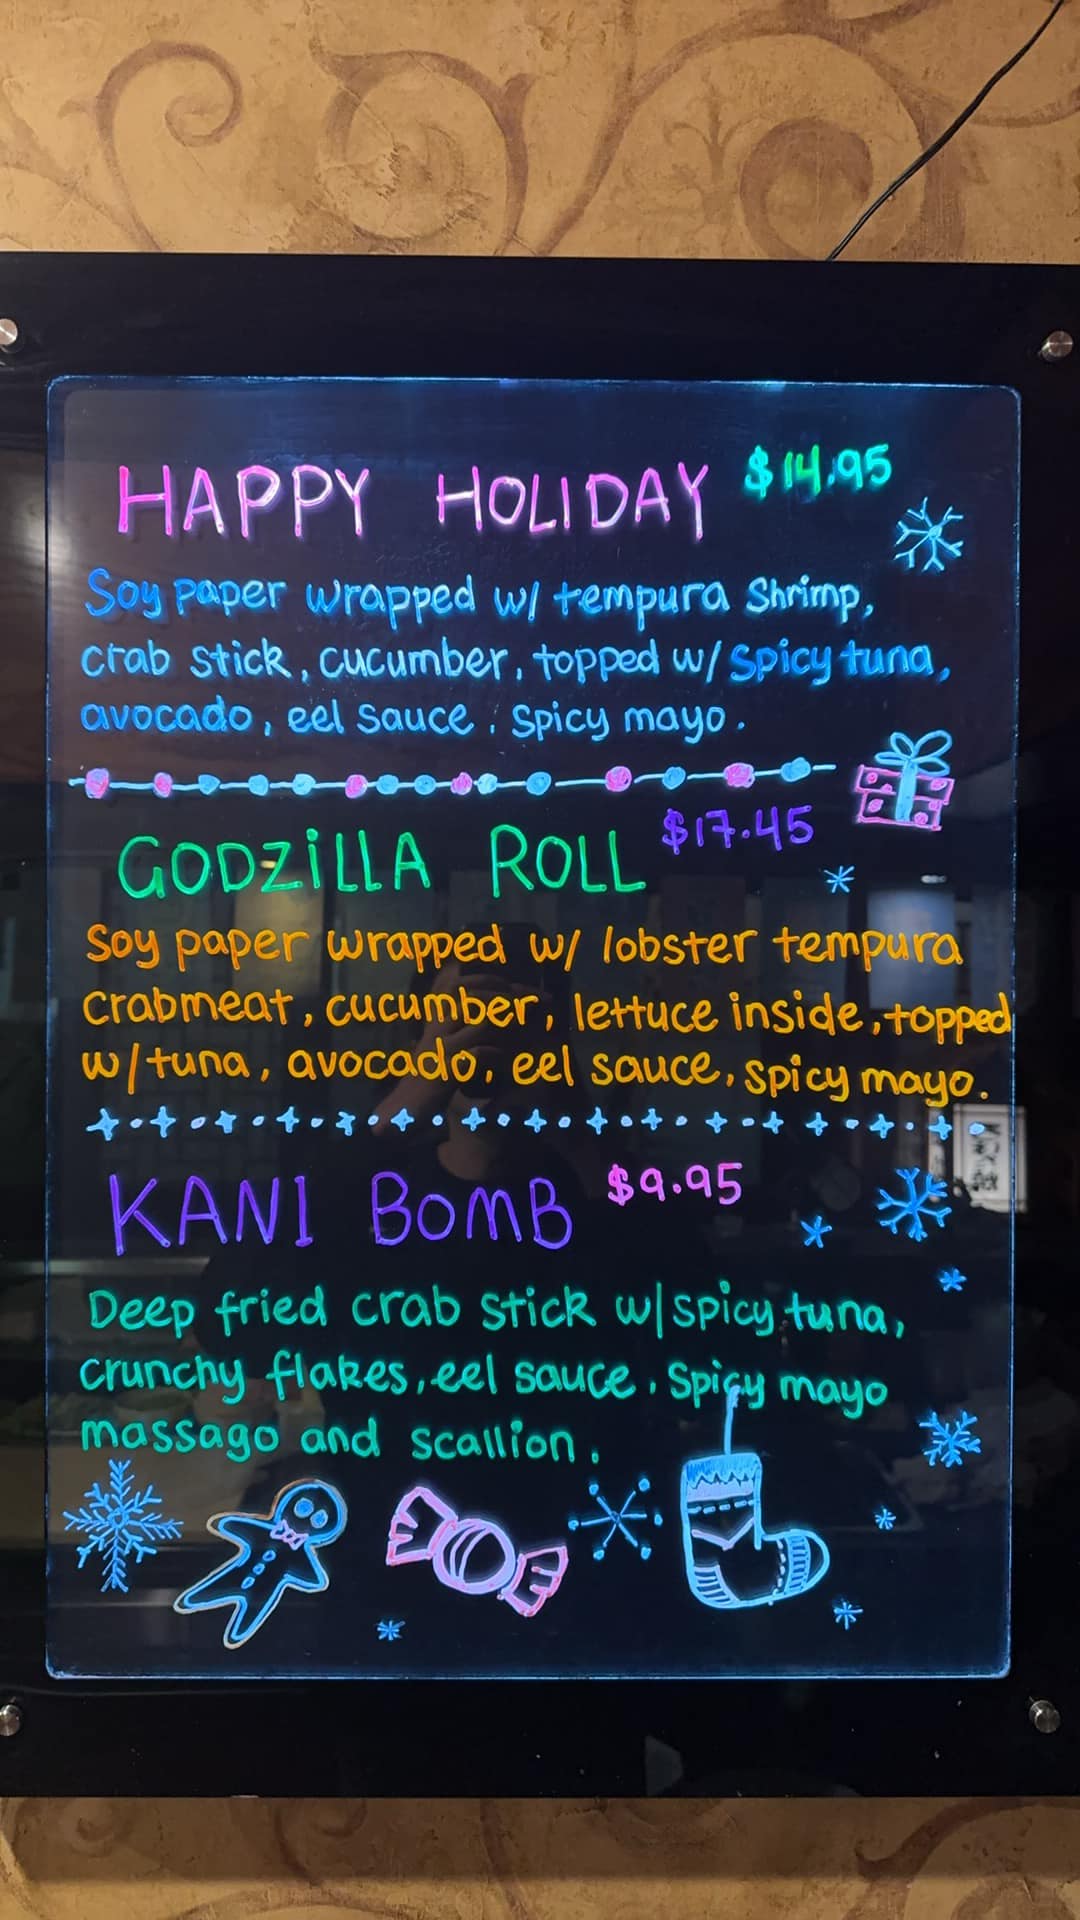 HAPPY HOLIDAY $14.95
Soy paper wrapped w/ tempura Shrimp,
crab stick, cucumber, topped w/ spicy tuna,
avocado, eel sauce, spicy mayo.
GODZILLA ROLL $17.45
Soy paper wrapped w/ lobster tempura
crabmeat, cucumber, lettuce inside, topped
w/tuna, avocado, eel sauce, spicy mayo.
KANI BOMB $9.95
Deep fried crab stick w/spicy tuna,
crunchy flakes, eel sauce, spicy mayo
massago and scallion.